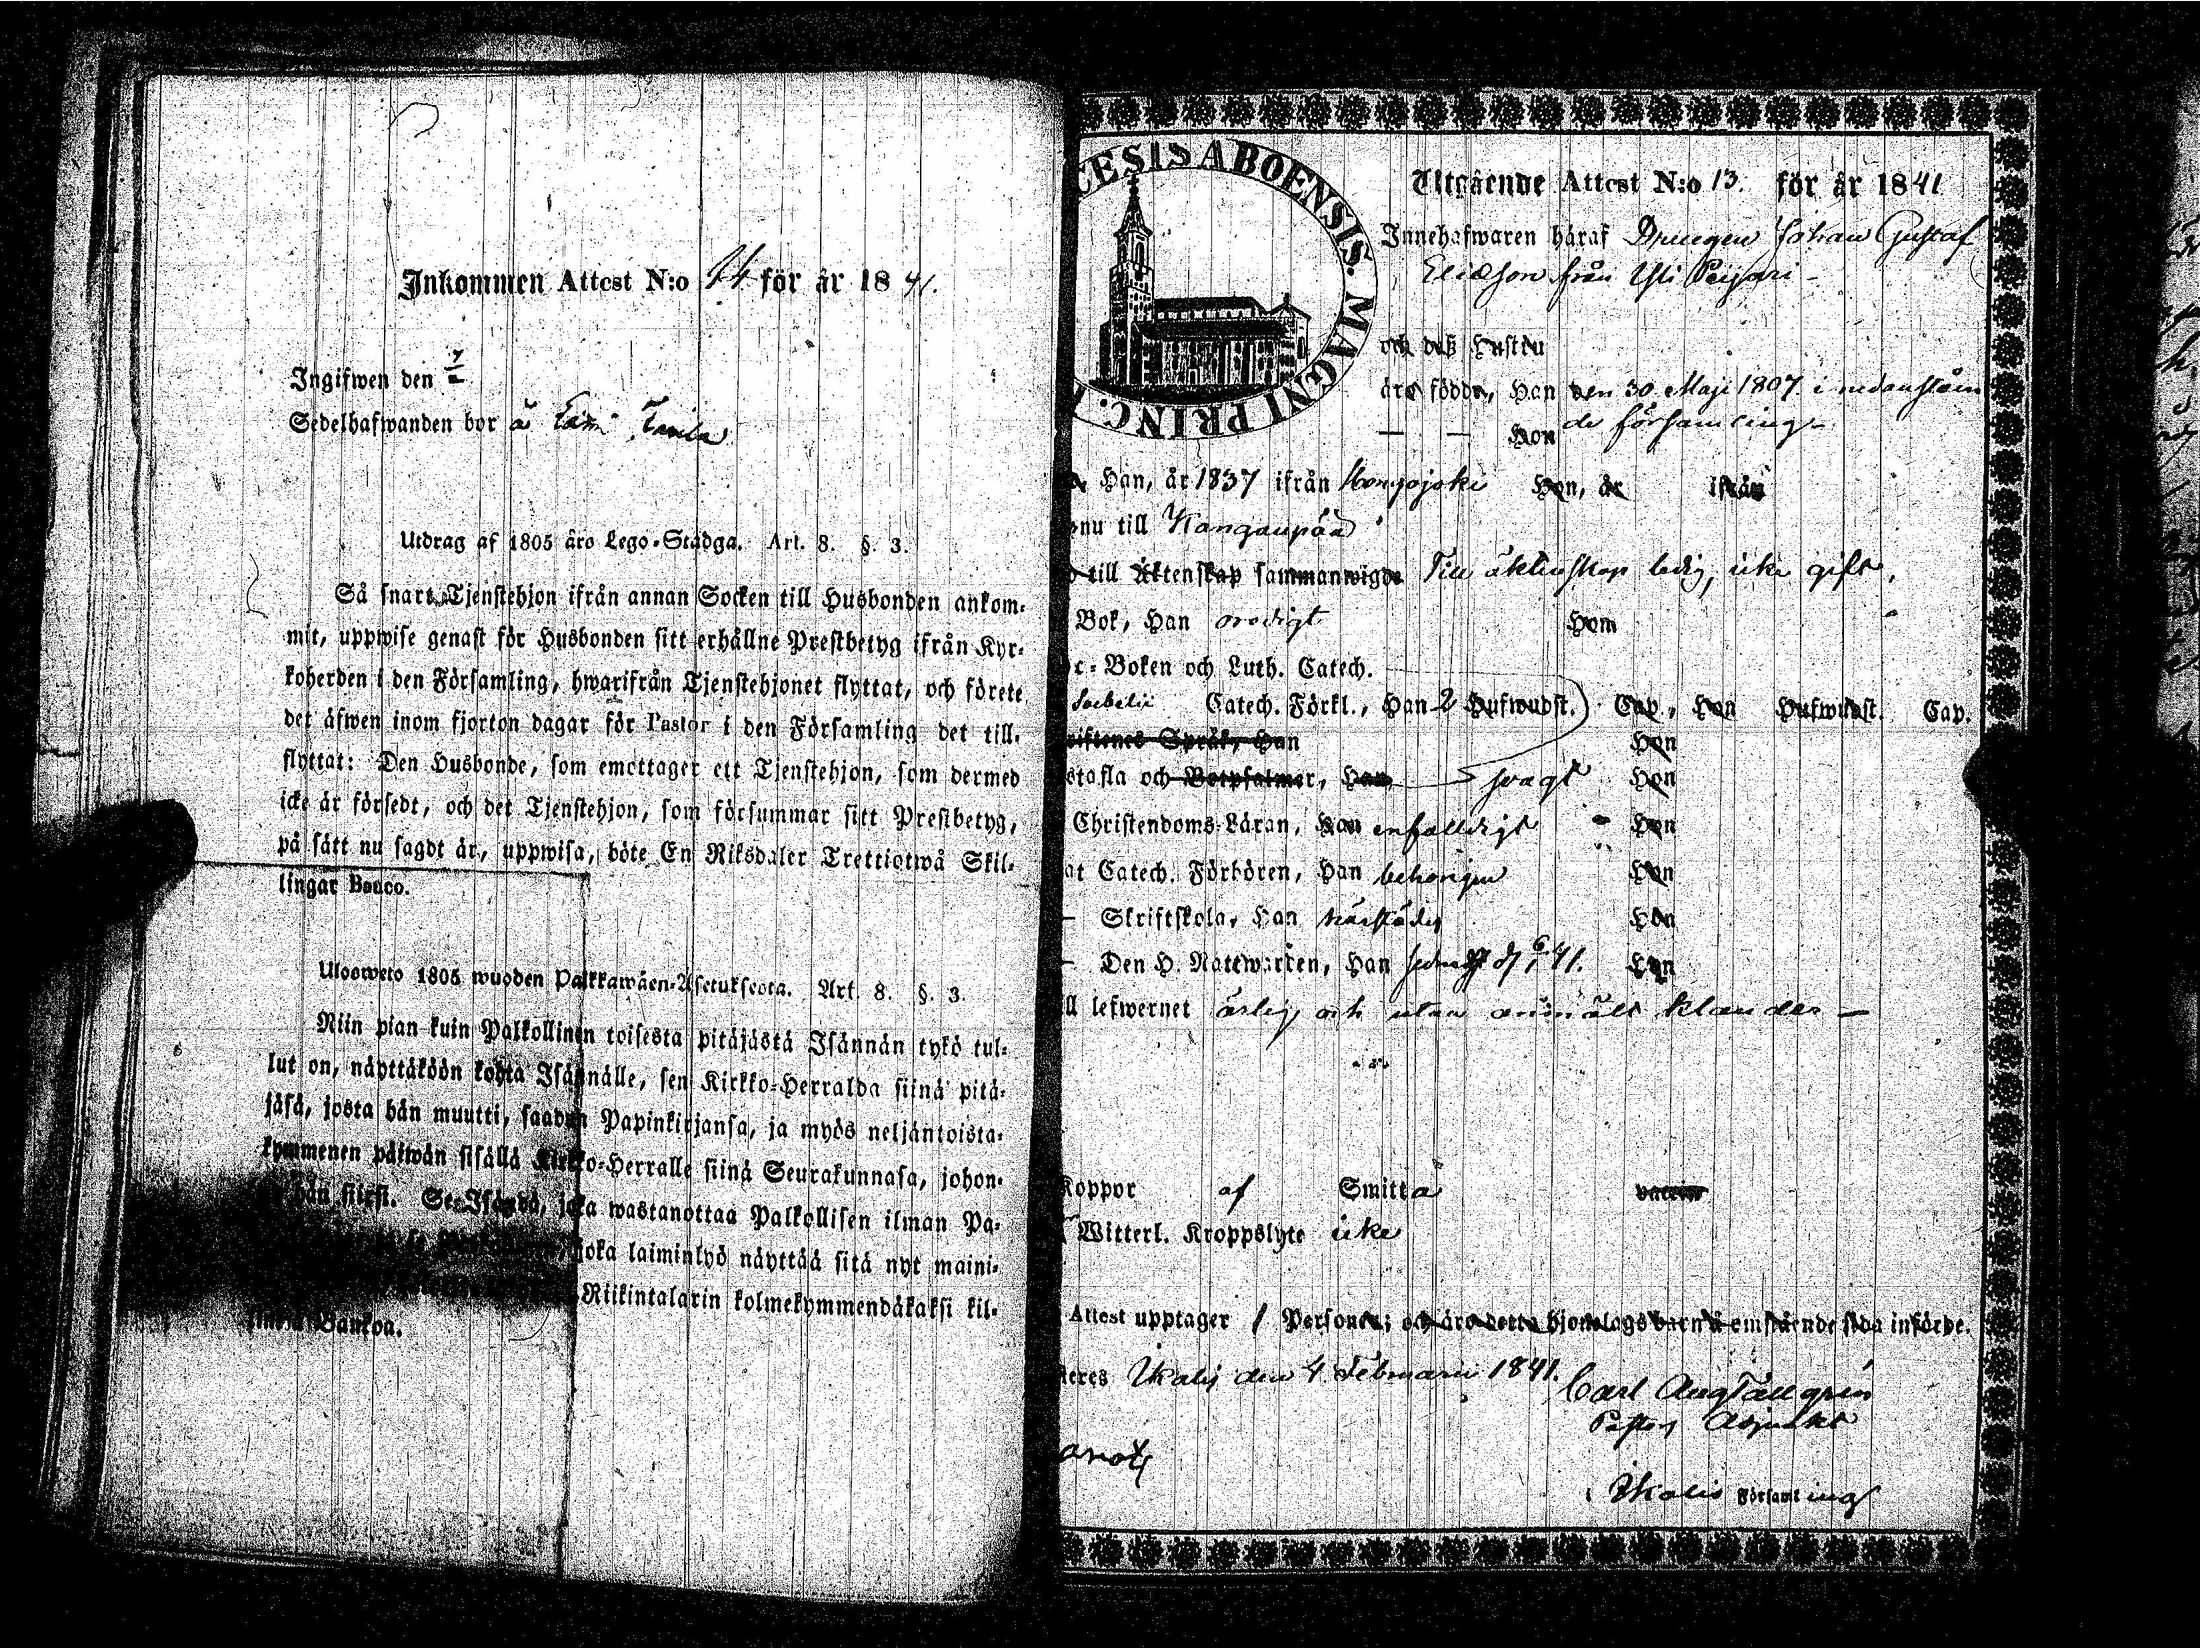 Inkommen Attest N:o 24 för år 1841.
Ingifwen den
Sedelhafwanden bor å
Utdrag af 1805 års Lego-Stadga. Art. 8. §. 3.
Så snart Tjenstehjon ifrån annan Socken till Husbonden ankom-
mit, uppwise genast för Husbonden sitt erhållne Prestbetyg ifrån Kyr-
koherden i den Församling, hwarifrån Tjenstehjonet flyttat, och förete
det äfwen inom fjorton dagar för Pastor i den Församling det till-
flyttat: Den Husbonde, som emottager ett Tjenstehjon, som dermed
icke är försedt, och det Tjenstehjon, som försummar sitt Prestbetyg,
på sätt nu sagdt är, uppwisa, böte En Riksdaler Trettiotwå Skil-
lingar Banco.
Ulosweto 1805 wuoden Palkkawäen-Asetuksesta. Art. 8. §. 3.
Niin pian kuin Palkollinen toisesta pitäjästä Isännän tykö tul-
lut on, näyttäköön kohta Isännälle, sen Kirkko-Herralda siinä pitä-
jäsä, josta hän muutti, saadun Papinkirjansa, ja myös neljäntoista-
kymmenen päiwän sisällä Kirkko-Herralle siinä Seurakunnasa, johon-
hän siirsi. Se Isändä, joka wastanottaa Palkollisen ilman Pa-
joka laiminlyö näyttää sitä nyt maini-
Riikintalarin kolmekymmendäkaksi kil-
Bankoa.
CESIS ABOENSIS. MAGNI PRINC.
Utgående Attest N:o 13. för år 1841
Innehafwaren häraf Drengen Johan Gustaf
Eliasson från Yli Peijari
och deß hustru
äro födde, Han den 30 Maji 1807 i nedanståen
Hon de församling
Han, år 1837 ifrån Hongojoki Hon, år ifrån
nu till Kangaupää
till Äktenskap sammanwigde Till äktenskap ledig, icke gift,
Bok, Han oredigt Hon
c-Boken och Luth. Catech.
Catech. Förkl., Han 2 Hufwudst. Cap., Hon Hufwudst. Cap.
riftenes Språk, Han Hon
stafla och Botpsalmer, Han svagt Hon
Christendoms-Läran, Han enfalldigt Hon
at Catech. Förhören, Han behörigen Hon
Skriftskola, Han härstädes Hon
Den H. Nattwarden, Han 41. Hon
ll lefwernet ärlig och utan anmält klander
Koppor af Smitta vaccin
Witterl. Kroppslyte icke
Attest upptager 1 Personer; och äro detta hjonelags barn å omstående sida införde.
teres Ikalis den 4 Februarii 1841.
Carl Aug Tällgrén
Pastors Adjunkt
i Ikalis Församling